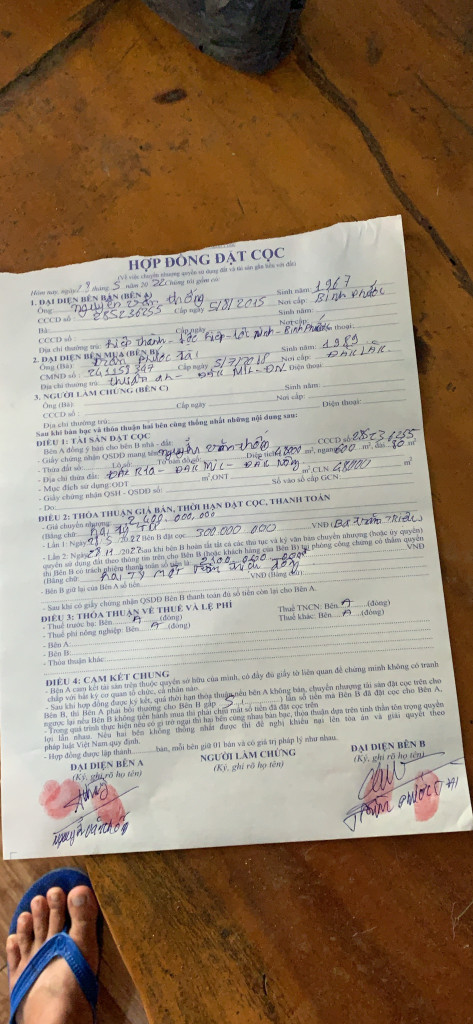 HỢP ĐỒNG ĐẶT CỌC
(Về việc chuyển nhượng quyền sử dụng đất và tài sản gắn liền với đất)
Hôm nay, ngày 23 tháng 5 năm 2022 chúng tôi gồm có:
1. ĐẠI DIỆN BÊN BÁN (BÊN A)
Ông: Nguyễn Văn thống Sinh năm: 1967
CCCD số: 285236255 Cấp ngày 5/8/2015 Nơi cấp: Bình Phước
Bà: Sinh năm:
CCCD số: Cấp ngày Nơi cấp:
Địa chỉ thường trú: Hiệp thành - Lộc Hiệp - Lộc Ninh - Bình Phước thoại:
2. ĐẠI DIỆN BÊN MUA (BÊN B)
Ông (Bà): Phước Tài Sinh năm: 1989
CMND số: Cấp ngày 5/7/2018 Nơi cấp: ĐĂK LĂK
Địa chỉ thường trú: thuận an - ĐĂK MIL - ĐN Điện thoại
3. NGƯỜI LÀM CHỨNG (BÊN C)
Ông (Bà): Sinh năm:
CCCD số: Cấp ngày Nơi cấp:
Địa chỉ thường trú: Điện thoại:
Sau khi bàn bạc và thỏa thuận hai bên cùng thống nhất những nội dung sau:
ĐIỀU 1: TÀI SẢN ĐẶT CỌC
- Bên A đồng ý bán cho bên B nhà - đất:
- Giấy chứng nhận QSDĐ mang tên: nguyễn văn thống CCCD số: 285236255
- Thửa đất số: Lô số: Tờ bản đồ số: Diện tích: 48000 m², ngang 600 m², dài: 80 m²
- Địa chỉ thửa đất: - ĐĂK MIL - ĐĂK Nông
- Mục đích sử dụng: ODT m², ONT m², CLN: 48000 m²
- Giấy chứng nhận QSH - QSDĐ số: Số vào sổ cấp GCN:
- Do:
ĐIỀU 2: THỎA THUẬN GIÁ BÁN, THỜI HẠN ĐẶT CỌC, THANH TOÁN
- Giá chuyển nhượng: 2,400.000,000
(Bằng chữ:
- Lần 1: Ngày 5/2022 Bên B đặt cọc 300.000.000 VNĐ (Ba trăm triệu)
- Lần 2: Ngày 2022 Sau khi bên B hoàn tất cả các thủ tục và ký văn bản chuyển nhượng (hoặc ủy quyền)
quyền sử dụng đất theo thông tin trên cho Bên B (hoặc khách hàng của Bên B) tại phòng công chứng có thẩm quyền
thì Bên B có trách nhiệm thanh toán số tiền là: VNĐ
(Bằng chữ: hai tỷ một trăm triệu đồng
- Bên B giữ lại của Bên A số tiền: VNĐ (Bằng chữ:
- Sau khi có giấy chứng nhận QSDĐ Bên B thanh toán đủ số tiền còn lại cho Bên A.
ĐIỀU 3: THỎA THUẬN VỀ THUẾ VÀ LỆ PHÍ
- Thuế trước bạ: Bên A (đóng) Thuế TNCN: Bên A (đóng)
- Thuế phi nông nghiệp: Bên A (đóng) Thuế khác: Bên A (đóng)
- Bên A:
- Bên B:
- Thỏa thuận khác:
ĐIỀU 4: CAM KẾT CHUNG
- Bên A cam kết tài sản trên thuộc quyền sở hữu của mình, có đầy đủ giấy tờ liên quan để chứng minh không có tranh
chấp với bất kỳ cơ quan tổ chức, cá nhân nào.
- Sau khi hợp đồng được ký kết, quá thời hạn thỏa thuận nếu bên A không bán, chuyển nhượng tài sản đặt cọc trên cho
Bên B, thì Bên A phải bồi thường cho Bên B gấp 5 lần số tiền mà Bên B đã đặt cọc cho Bên A,
ngược lại nếu Bên B không tiến hành mua thì phải chịu mất số tiền đã đặt cọc trên
- Trong quá trình thực hiện nếu có gì trở ngại thì hai bên cùng nhau bàn bạc, thỏa thuận dựa trên tinh thần tôn trọng quyền
lợi lẫn nhau. Nếu hai bên không thống nhất được thì đề nghị khiếu nại lên tòa án và giải quyết theo
pháp luật Việt Nam quy định.
- Hợp đồng được lập thành bản, mỗi bên giữ 01 bản và có giá trị pháp lý như nhau.
ĐẠI DIỆN BÊN A NGƯỜI LÀM CHỨNG ĐẠI DIỆN BÊN B
(Ký, ghi rõ họ tên) (Ký, ghi rõ họ tên) (Ký, ghi rõ họ tên)
nguyễn văn thống Trần Phước TÀI